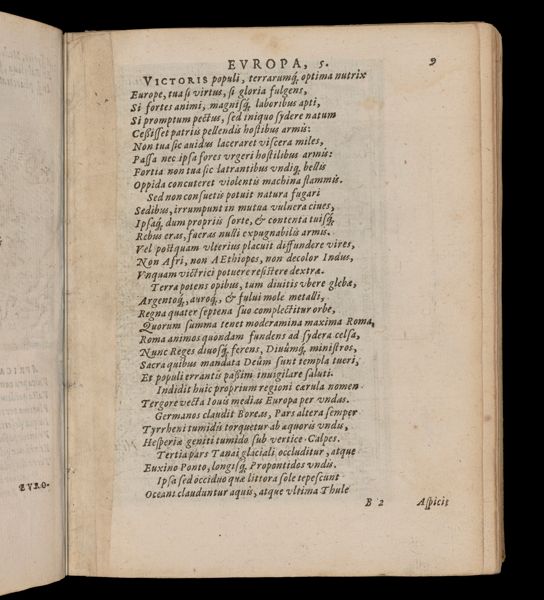 EVROPA, 5.
9
VICTORIS populi, terrarumq́, optima nutrix
Europe, tua si virtus, si gloria fulgens,
Si fortes animi, magnisq́, laboribus apti,
Si promptum pectus, sed iniquo sydere natum
Ceßisset patriis pellendis hostibus armis:
Non tua sic auidus laceraret viscera miles,
Passa nec ipsa fores vrgeri hostilibus armis:
Fortia non tua sic latrantibus vndiq, bellis
Oppida concuteret violentis machina flammis.
Sed non consuetis potuit natura fugari
Sedibus, irrumpunt in mutua vulnera ciues,
Ipsaq́, dum propriis sorte, & contenta tuisq́,
Rebus eras, fueras nulli expugnabilis armis.
Vel postquam vlterius placuit diffundere vires,
Non Afri, non AEthiopes, non decolor Indus,
Vnquam victrici potuere resistere dextræ.
Terra potens opibus, tum diuitis vbere glebæ,
Argentoq́, auroq́, & fului mole metalli,
Regna quater septena suo complectitur orbe,
Quorum summa tenet moderamina maxima Roma,
Roma animos quondam fundens ad sydera celsa,
Nunc Reges diuosq́, ferens, Diuûmq́, ministros,
Sacra quibus mandata Deûm sunt templa tueri,
Et populi errantis paßim inuigilare saluti.
Indidit huic proprium regioni cærula nomen
Tergore vecta Iouis medias Europa per vndas.
Germanos claudit Boreas, Pars altera semper
Tyrrheni tumidis torquetur ab æquoris vndis,
Hesperiæ geniti tumido sub vertice Calpes.
Tertia pars Tanai glaciali occluditur, atque
Euxino Ponto, longisq́, Propontidos vndis.
Ipsa sed occiduo quæ littora sole tepescunt
Oceani clauduntur aquis, atque vltima Thule
B 2 Aspicit
EVRO-